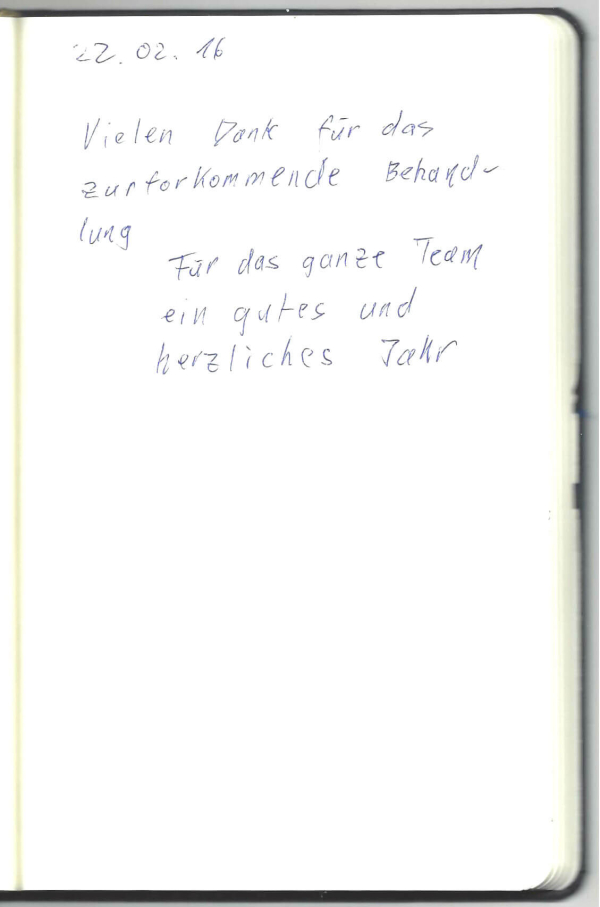 22.02.16
Vielen Dank für das
zurforkommende Behand-
lung
Für das ganze Team
ein gutes und
herzliches Jahr